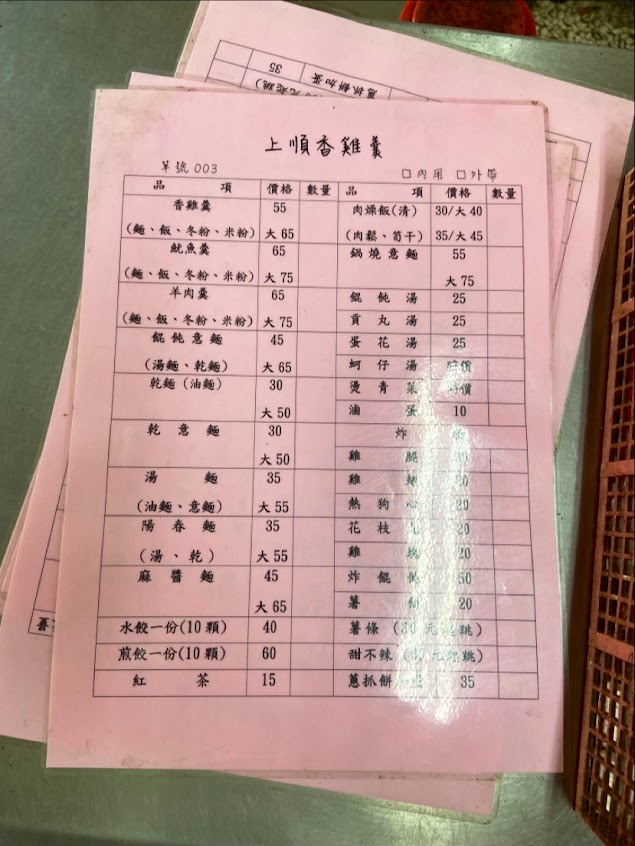 35 蔥抓餅加蛋
上順香雞羹
單號003 口內用 口外帶
品項 價格 數量 品項 價格 數量
香雞羹 55
(麵、飯、冬粉、米粉) 大65
魷魚羹 65
(麵、飯、冬粉、米粉) 大75
羊肉羹 65
(麵、飯、冬粉、米粉) 大75
餛飩意麵 45
(湯麵、乾麵) 大65
乾麵(油麵) 30
大50
乾意麵 30
大50
湯麵 35
(油麵、意麵) 大55
陽春麵 35
(湯、乾) 大55
麻醬麵 45
大65
水餃一份(10顆) 40
煎餃一份(10顆) 60
紅茶 15
肉燥飯(清) 30/大40
(肉鬆、筍干) 35/大45
鍋燒意麵 55
大75
餛飩湯 25
貢丸湯 25
蛋花湯 25
蚵仔湯 時價
燙青菜 時價
滷蛋 10
炸
雞腿
雞
熱狗 20
花枝 20
雞塊 20
炸餛飩 50
薯 20
薯條(30元起跳)
甜不辣(30元起跳)
蔥抓餅加蛋 35